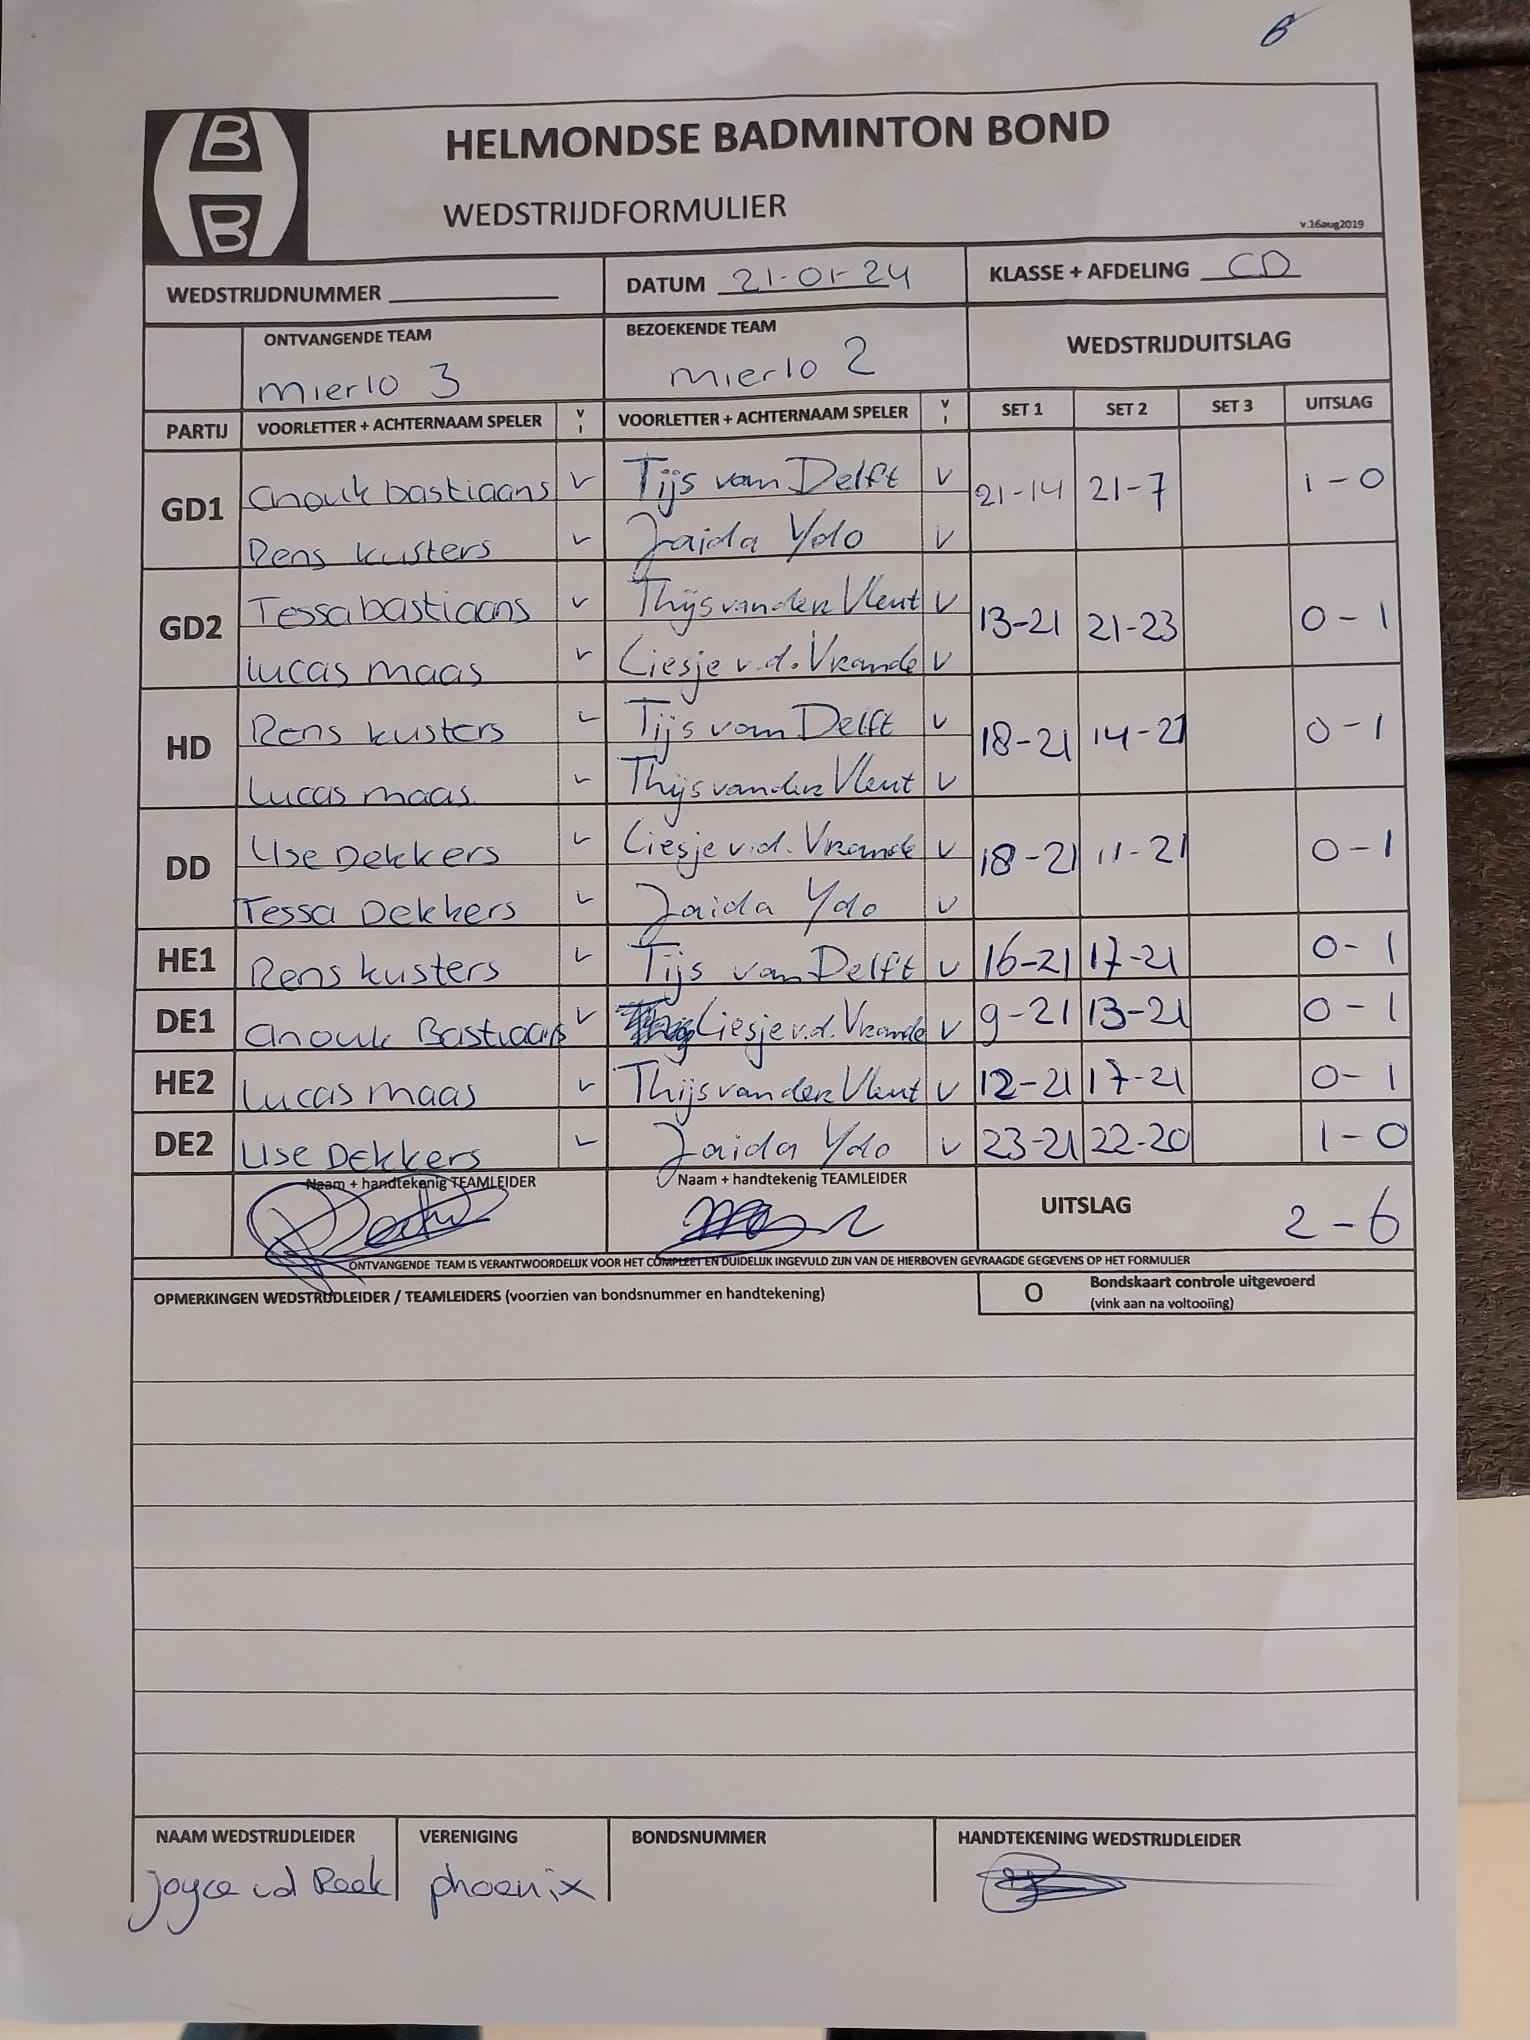 6
B
B
HELMONDSE BADMINTON BOND
WEDSTRIJDFORMULIER
v.16aug2019
WEDSTRIJDNUMMER DATUM 21-01-24 KLASSE + AFDELING CD
ONTVANGENDE TEAM BEZOEKENDE TEAM WEDSTRIJDUITSLAG
mierlo 3 mierlo 2
PARTIJ VOORLETTER + ACHTERNAAM SPELER V I VOORLETTER + ACHTERNAAM SPELER V I SET 1 SET 2 SET 3 UITSLAG
GD1 Anouk bastiaans v Tijs van Delft v 21-14 21-7 1-0
Rens kusters v Jaida Ydo v
GD2 Tessa bastiaans v Thijs van der Vleut v 13-21 21-23 0-1
Lucas maas v Liesje v.d. Vrande v
HD Rens kusters v Tijs van Delft v 18-21 14-21 0-1
Lucas maas. v Thijs van der Vleut v
DD Ilse Dekkers v Liesje v.d. Vrande v 18-21 11-21 0-1
Tessa Dekkers v Jaida Ydo v
HE1 Rens kusters v Tijs van Delft v 16-21 17-21 0-1
DE1 Anouk Bastiaans v Liesje v.d. Vrande v 9-21 13-21 0-1
HE2 Lucas maas v Thijs van der Vleut v 12-21 17-21 0-1
DE2 Ilse Dekkers v Jaida Ydo v 23-21 22-20 1-0
Naam + handtekenig TEAMLEIDER Naam + handtekenig TEAMLEIDER UITSLAG 2-6
ONTVANGENDE TEAM IS VERANTWOORDELIJK VOOR HET COMPLEET EN DUIDELIJK INGEVULD ZIJN VAN DE HIERBOVEN GEVRAAGDE GEGEVENS OP HET FORMULIER
OPMERKINGEN WEDSTRIJDLEIDER / TEAMLEIDERS (voorzien van bondsnummer en handtekening) O Bondskaart controle uitgevoerd
(vink aan na voltooiing)
NAAM WEDSTRIJDLEIDER VERENIGING BONDSNUMMER HANDTEKENING WEDSTRIJDLEIDER
Joyce vd Beek phoenix